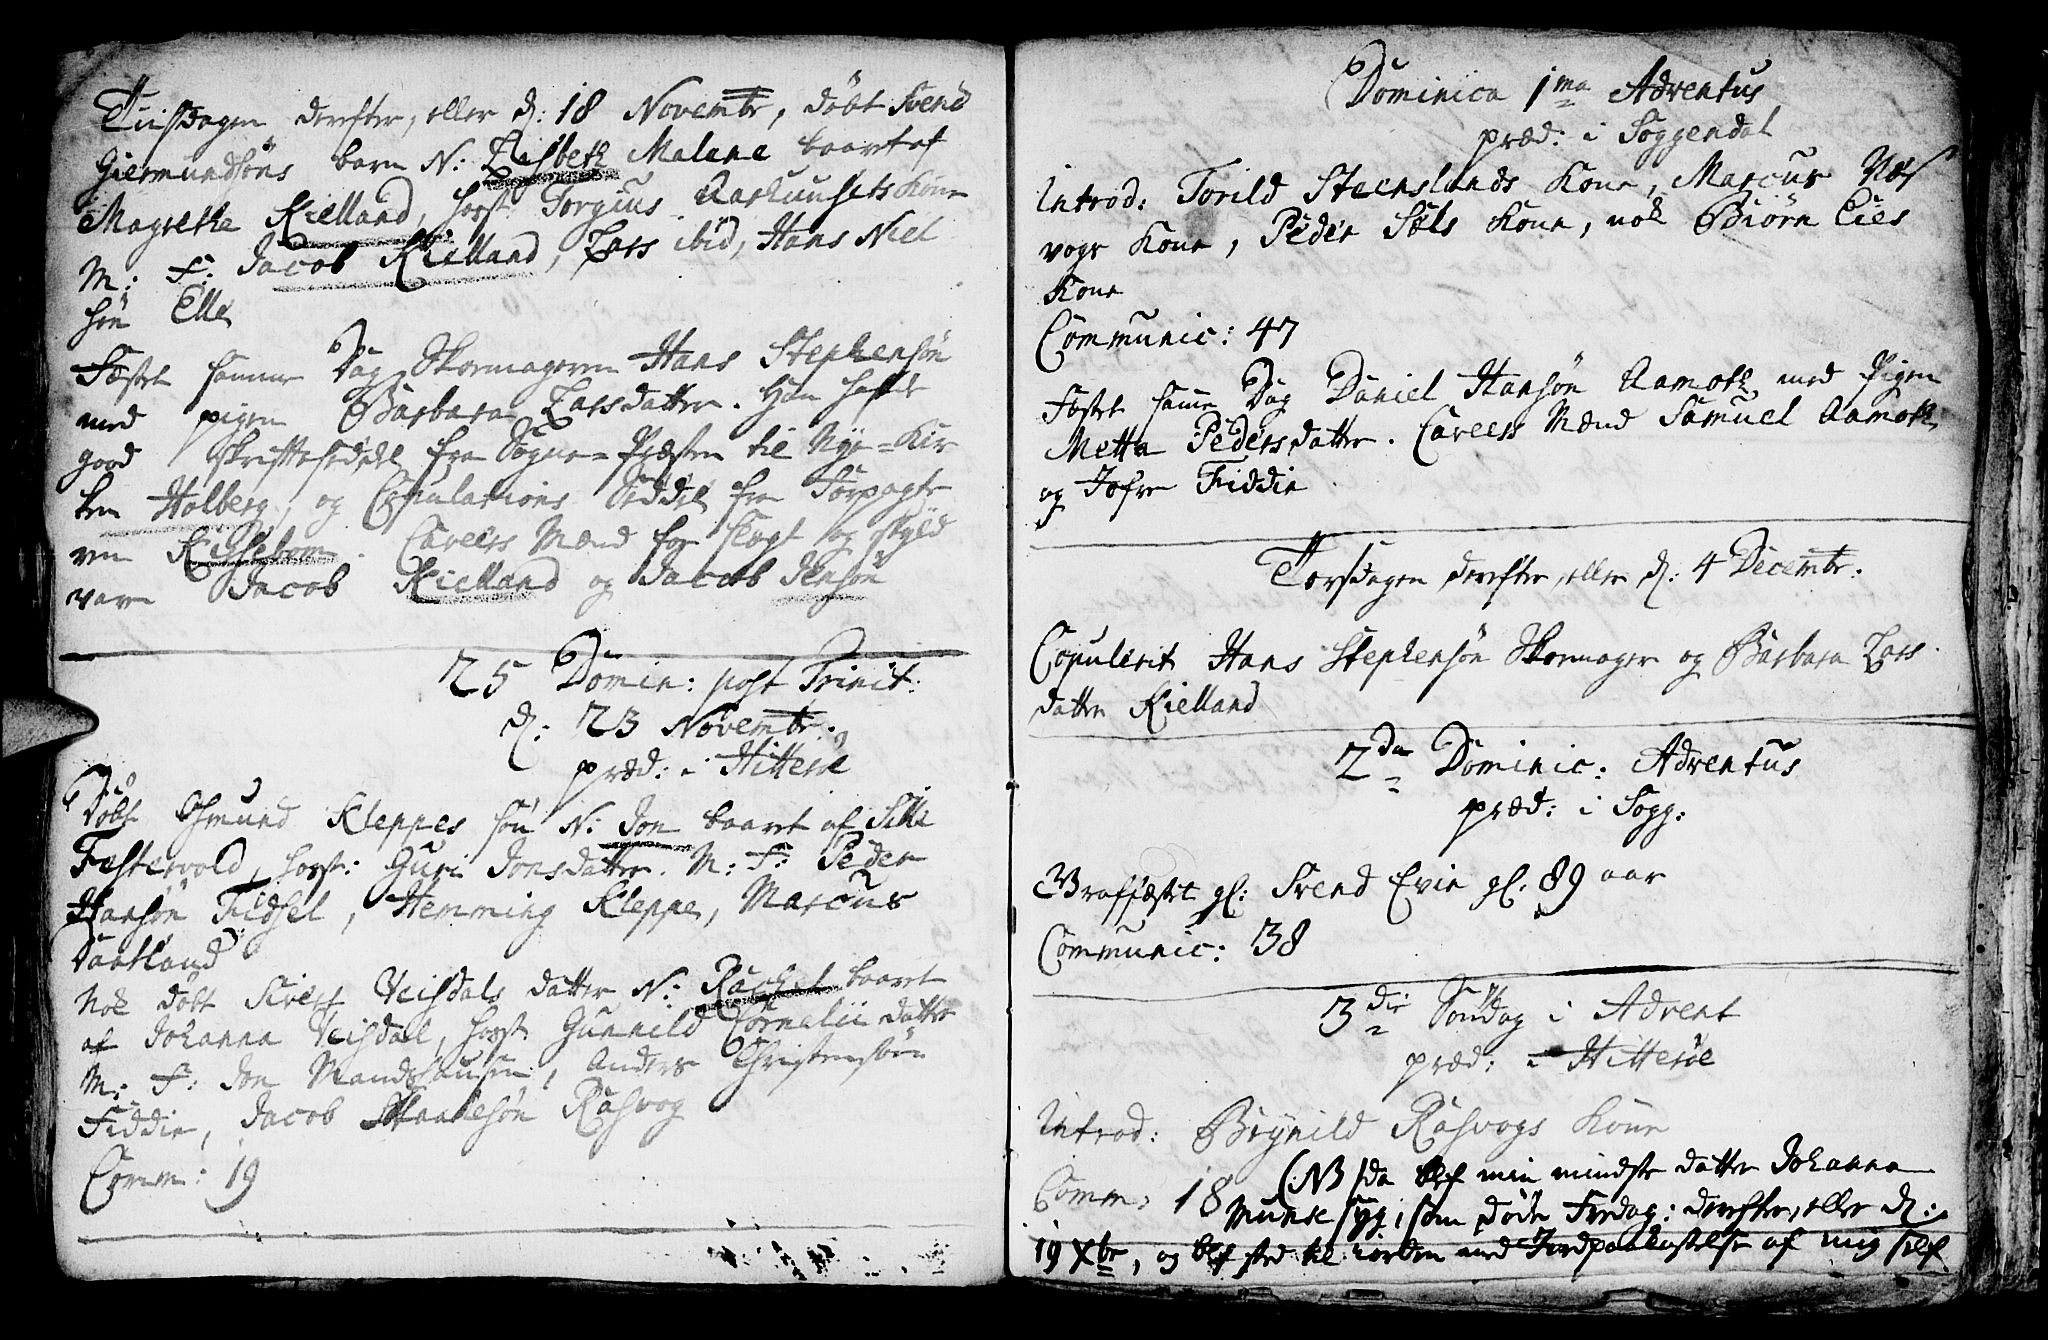 Tiisdagen derefter, eller d: 18 Novembr, döbt Svend
Giermundsöns barn N: Lisbeth Malene baaret af
Magrethe Kielland, horst: Torgiuus Aarhuusets Kone
M: F: Jacob Kielland, Lars ibid, Hans Niel
sön Elle
Fæstet samme Dag Skoemageren Hans Stephensön
med pigen Barbara Larsdatter. Han hafde
good Skriftesedel fra Sogne-Præsten til Nye-Kir
ken Holberg, og Copulations Seddel fra Forpagte
ren Risebrem. Caveers Mænd for Slegt og Skyld
vare Jacob Kielland og Jacob Jensön
25 Domin: post Trinit:
d: 23 Novembr.
præd: i Hitteröe
Döbt Osmund Kleppes sön N: Jon baaret af Sille
Festervold, horst: Guri Jonsdatter. M: F: Peder
Hansön Fidsel, Hemming Kleppe, Marcus
Daatland
Nok döbt Sivert Veisdals datter N: Rachel baaret
af Johanna Veisdal, horst: Gunnild Cornelii datter
M: F: Jon Mandshausen, Anders Christensön
Fiddie, Jacob Staalesön Rasvog
Comm: 19
Dominica 1ma Adventus
præd: i Soggendal
Introd: Torild Steenslands Kone, Marcus Næs
vogs Kone, Peder Sæls Kone, nok Biörn Eies
Kone
Communic: 47
Fæstet same Dag Daniel Hansön Aamoth med Pigen
Metta Pedersdatter. Caveers Mænd Samuel Aamoth
og Tofre Fiddie
Torsdagen derefter, eller d: 4 Decembr.
Copulerit Hans Stephensön Skoemager og Barbara Lars
datter Kielland
2da Dominic: Adventus
præd: i Sogg:
Graffæstet gl: Svend Evie gl. 89 aar
Communic: 38
3die Söndag i Advent
præd: i Hitteröe
Introd: Brynild Rasvogs Kone
Comm: 18 (NB da blef min mindste datter Johanna
Munk syg, som döde Fredag: derefter, eller d:
19 Xbr, og blef sted til iorden med Jordpaakastelse af mig self